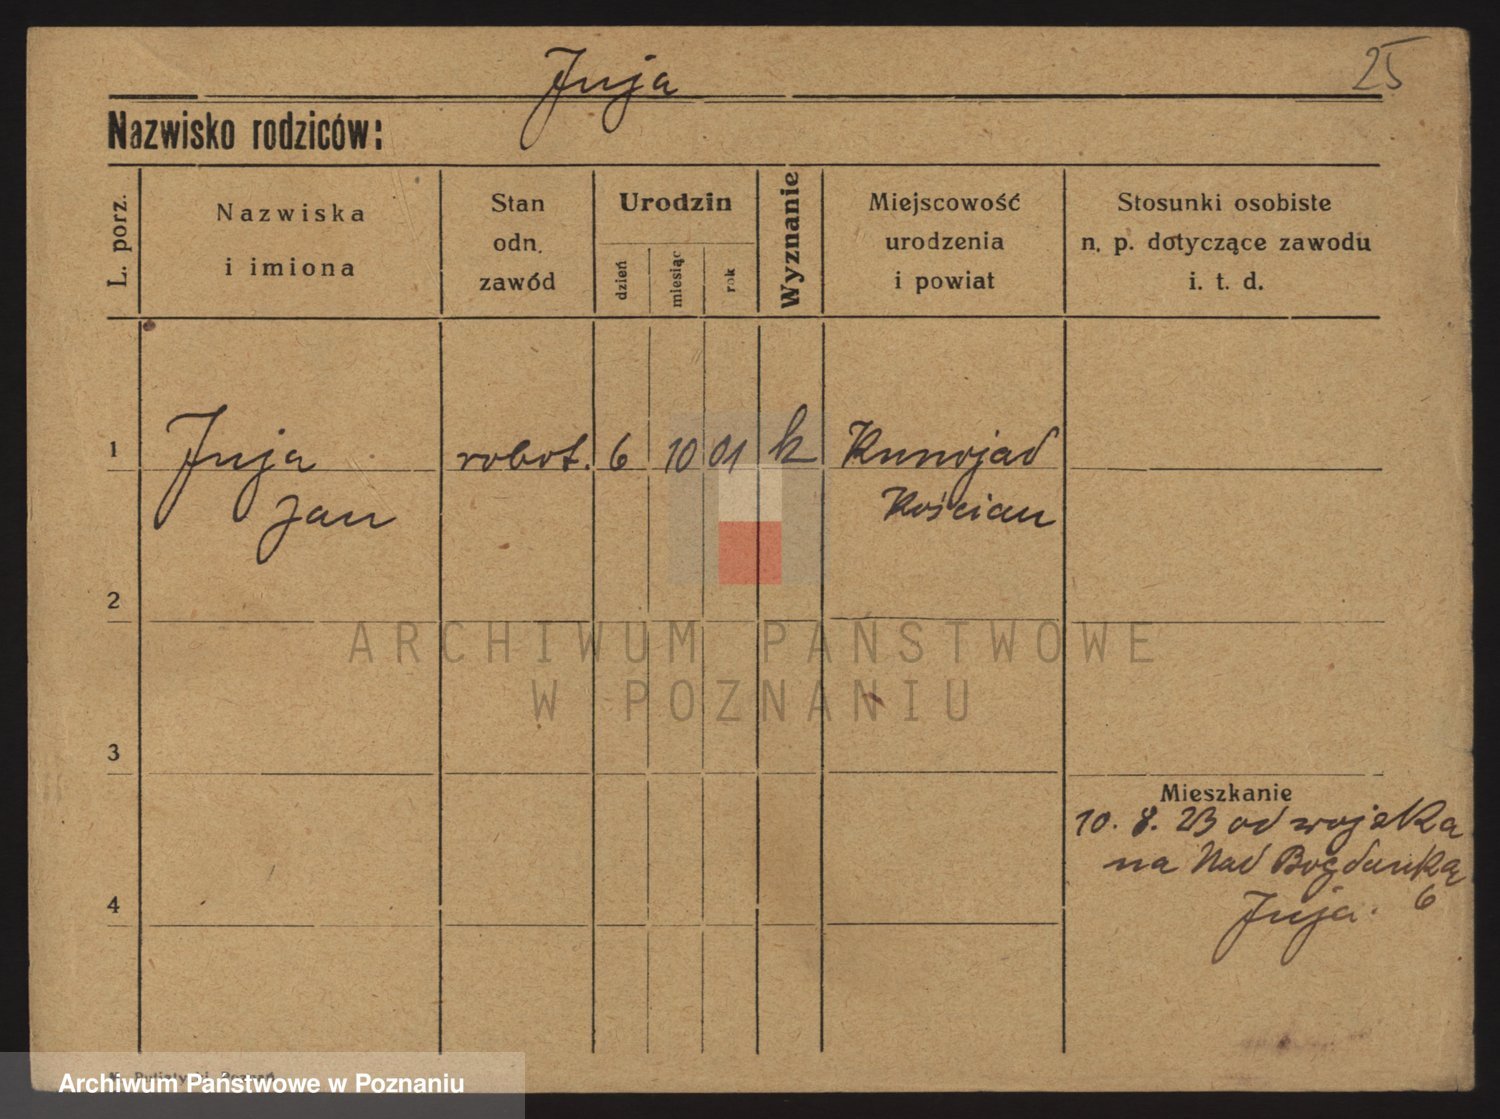 Juja
25
Nazwisko rodziców:
L. porz.
Nazwiska
i imiona
Stan
odn.
zawód
Urodzin
dzień
miesiąc
rok
Wyznanie
Miejscowość
urodzenia
i powiat
Stosunki osobiste
n. p. dotyczące zawodu
i. t. d.
1 Juja robot. 6 10 01 k Runojad
Jan Kościan
2
ARCHIWUM PAŃSTWOWE
W POZNANIU
3
Mieszkanie
10. 8. 23 od wojska
na Nad Bogdanką
6
Juja.
4
Archiwum Państwowe w Poznaniu